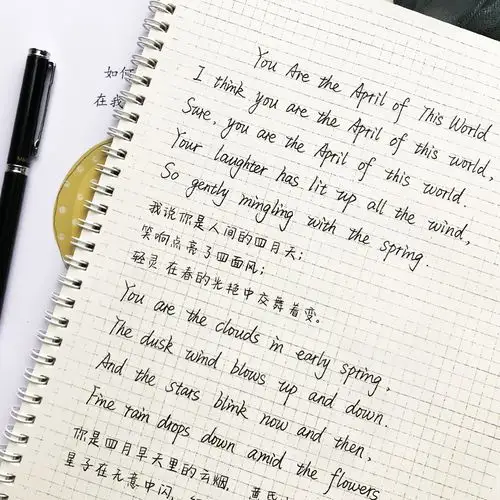 如何
在我
You Are the April of This World
I think you are the April of this world,
Sure, you are the April of this world.
Your laughter has lit up all the wind,
So gently mingling with the spring
我说你是人间的四月天；
笑响点亮了四面风；
轻灵在春的光艳中交舞着变。
You are the clouds in early spring,
The dusk wind blows up and down.
And the stars blink now and then,
Fine rain drops down amid the flowers
你是四月早天里的云烟，黄
星子在无意中闪，